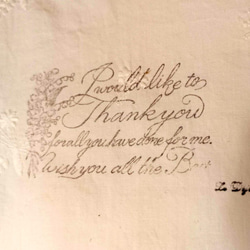 I would like to
Thank you
for all you have done for me.
wish you all the